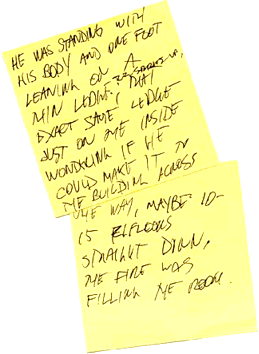 HE WAS STANDING WITH
HIS BODY AND ONE FOOT
LEANING ON A
THIN LEDGE, THAT
EXACT SAME LEDGE
JUST ON THE INSIDE
WONDRING IF HE
COULD MAKE IT TO
THE BUILDING ACROSS
THE WAY, MAYBE 10-
15 FLOORS
STRAIGHT DOWN,
THE FIRE WAS
FILLING THE ROOM.